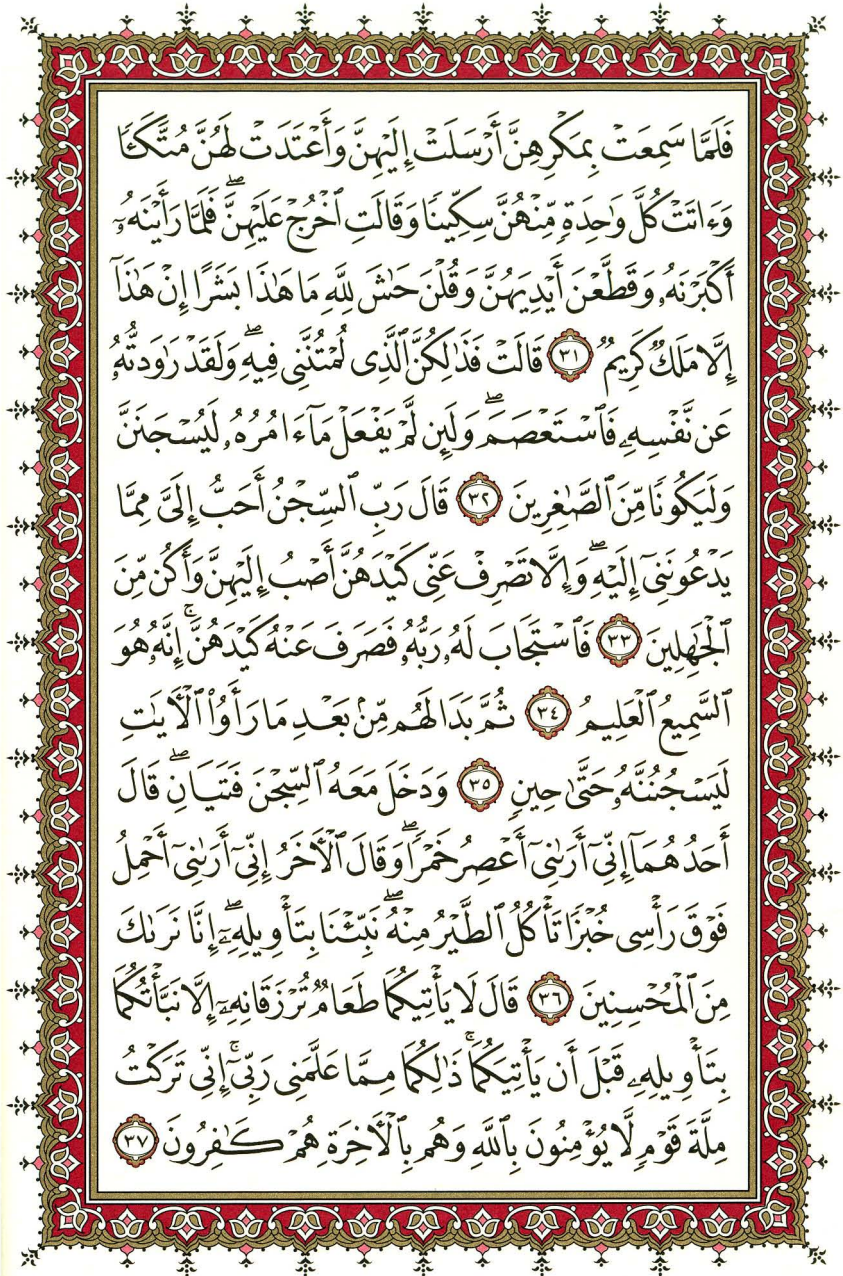 فَلَمَّا سَمِعَتْ بِمَكْرِهِنَّ أَرْسَلَتْ إِلَيْهِنَّ وَأَعْتَدَتْ لَهُنَّ مُتَّكَـًٔا
وَءَاتَتْ كُلَّ وَٰحِدَةٍ مِّنْهُنَّ سِكِّينًا وَقَالَتِ ٱخْرُجْ عَلَيْهِنَّ ۖ فَلَمَّا رَأَيْنَهُۥٓ
أَكْبَرْنَهُۥ وَقَطَّعْنَ أَيْدِيَهُنَّ وَقُلْنَ حَـٰشَ لِلَّهِ مَا هَـٰذَا بَشَرًا إِنْ هَـٰذَآ
إِلَّا مَلَكٌ كَرِيمٌ ٣١ قَالَتْ فَذَٰلِكُنَّ ٱلَّذِى لُمْتُنَّنِى فِيهِ ۖ وَلَقَدْ رَٰوَدتُّهُۥ
عَن نَّفْسِهِۦ فَٱسْتَعْصَمَ ۖ وَلَئِن لَّمْ يَفْعَلْ مَآ ءَامُرُهُۥ لَيُسْجَنَنَّ
وَلَيَكُونًا مِّنَ ٱلصَّـٰغِرِينَ ٣٢ قَالَ رَبِّ ٱلسِّجْنُ أَحَبُّ إِلَىَّ مِمَّا
يَدْعُونَنِىٓ إِلَيْهِ ۖ وَإِلَّا تَصْرِفْ عَنِّى كَيْدَهُنَّ أَصْبُ إِلَيْهِنَّ وَأَكُن مِّنَ
ٱلْجَـٰهِلِينَ ٣٣ فَٱسْتَجَابَ لَهُۥ رَبُّهُۥ فَصَرَفَ عَنْهُ كَيْدَهُنَّ ۚ إِنَّهُۥ هُوَ
ٱلسَّمِيعُ ٱلْعَلِيمُ ٣٤ ثُمَّ بَدَا لَهُم مِّنۢ بَعْدِ مَا رَأَوُا۟ ٱلْـَٔايَـٰتِ
لَيَسْجُنُنَّهُۥ حَتَّىٰ حِينٍ ٣٥ وَدَخَلَ مَعَهُ ٱلسِّجْنَ فَتَيَانِ ۖ قَالَ
أَحَدُهُمَآ إِنِّىٓ أَرَىٰنِىٓ أَعْصِرُ خَمْرًا ۖ وَقَالَ ٱلْـَٔاخَرُ إِنِّىٓ أَرَىٰنِىٓ أَحْمِلُ
فَوْقَ رَأْسِى خُبْزًا تَأْكُلُ ٱلطَّيْرُ مِنْهُ ۖ نَبِّئْنَا بِتَأْوِيلِهِۦٓ ۖ إِنَّا نَرَىٰكَ
مِنَ ٱلْمُحْسِنِينَ ٣٦ قَالَ لَا يَأْتِيكُمَا طَعَامٌ تُرْزَقَانِهِۦٓ إِلَّا نَبَّأْتُكُمَا
بِتَأْوِيلِهِۦ قَبْلَ أَن يَأْتِيَكُمَا ۚ ذَٰلِكُمَا مِمَّا عَلَّمَنِى رَبِّىٓ ۚ إِنِّى تَرَكْتُ
مِلَّةَ قَوْمٍ لَّا يُؤْمِنُونَ بِٱللَّهِ وَهُم بِٱلْـَٔاخِرَةِ هُمْ كَـٰفِرُونَ ٣٧